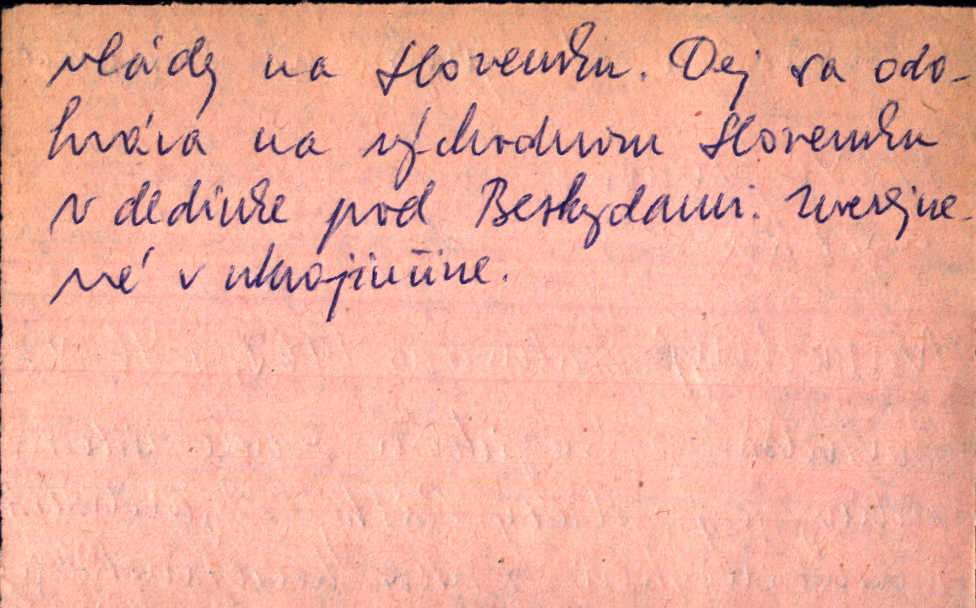 vlády na Slovensku. Dej sa odo-
hráva na východnom Slovensku
v dedinke pod Beskydami. Uverejne-
né v ukrajinčine.